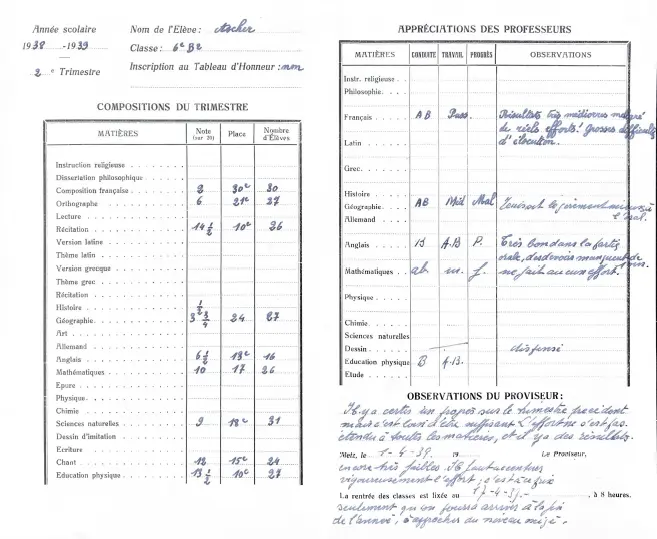 Année scolaire
1938 -1939
2e Trimestre
Nom de l'Elève : Ascher
Classe : 6e B2
Inscription au Tableau d'Honneur : non
COMPOSITIONS DU TRIMESTRE
MATIÈRES Note (sur 20) Place Nombre d'Élèves
Instruction religieuse
Dissertation philosophique
Composition française 2 30e 30
Orthographe 6 21e 27
Lecture
Récitation 14 ½ 10e 26
Version latine
Thème latin
Version grecque
Thème grec
Récitation
Histoire ½
Géographie 3 ¾ 24 27
Art
Allemand
Anglais 6 ½ 13e 16
Mathématiques 10 17 26
Epure
Physique
Chimie
Sciences naturelles 9 18e 31
Dessin d'imitation
Ecriture
Chant 12 15e 24
Education physique 13 ½ 10e 27
APPRÉCIATIONS DES PROFESSEURS
MATIÈRES CONDUITE TRAVAIL PROGRÈS OBSERVATIONS
Instr. religieuse
Philosophie
Français AB Pass. Résultats très médiocres malgré
de réels efforts! Grosses difficultés
Latin d'élocution.
Grec
Histoire
Géographie AB Méd Mal
Allemand
Anglais B A.B P. Très bon dans la partie
orale, des devoirs manquent
Mathématiques ab. m. f. ne fait aucun effort.
Physique
Chimie
Sciences naturelles
Dessin dispensé
Education physique B A.B.
Etude
OBSERVATIONS DU PROVISEUR :
Il y a certes un progrès sur le trimestre précédent
mais c'est loin d'être suffisant L'effort ne s'est pas
étendu à toutes les matières, et il y a des résultats
Metz, le 1-4-39. 19 Le Proviseur,
encore très faibles. Il faut accentuer
vigoureusement l'effort ; c'est à ce prix
La rentrée des classes est fixée au 17-4-39 , à 8 heures.
seulement qu'on pourra arriver à la fin
de l'année, à approcher du niveau exigé.